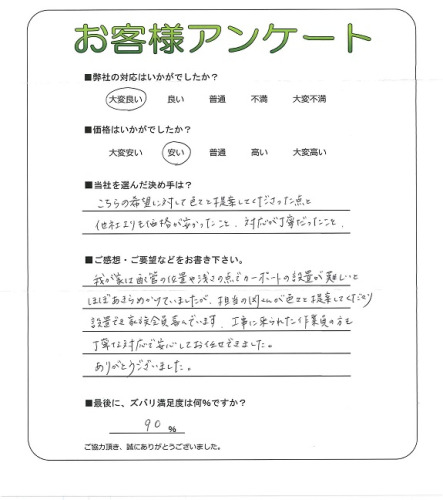 お客様アンケート
■弊社の対応はいかがでしたか?
大変良い 良い 普通 不満 大変不満
■価格はいかがでしたか?
大変安い 安い 普通 高い 大変高い
■当社を選んだ決め手は?
こちらの希望に対して色々と提案してくださった点と
他社よりも価格が安かったこと、対応が丁寧だったこと、
■ご感想・ご要望などをお書き下さい。
我が家は配管の位置や浅さの点でカーポートの設置が難しいと
ほぼあきらめかけていましたが、担当の さんが色々と提案してくださり
設置でき家族全員喜んでいます、工事に来られた作業員の方も
丁寧な対応で安心してお任せできました。
ありがとうございました。
■最後に、ズバリ満足度は何%ですか?
90 %
ご協力頂き、誠にありがとうございました。